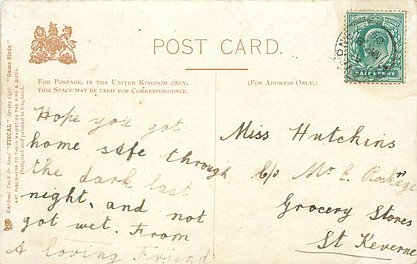 POST CARD.
FOR POSTAGE, IN THE UNITED KINGDOM ONLY,
THIS SPACE MAY BE USED FOR CORRESPONDENCE.
(FOR ADDRESS ONLY.)
Hope you got
home safe through
the dark last
night, and not
got wet. From
A loving Friend
Miss Hutchins
c/o Mr E
Grocery Stores
St Keverne
HALFPENNY